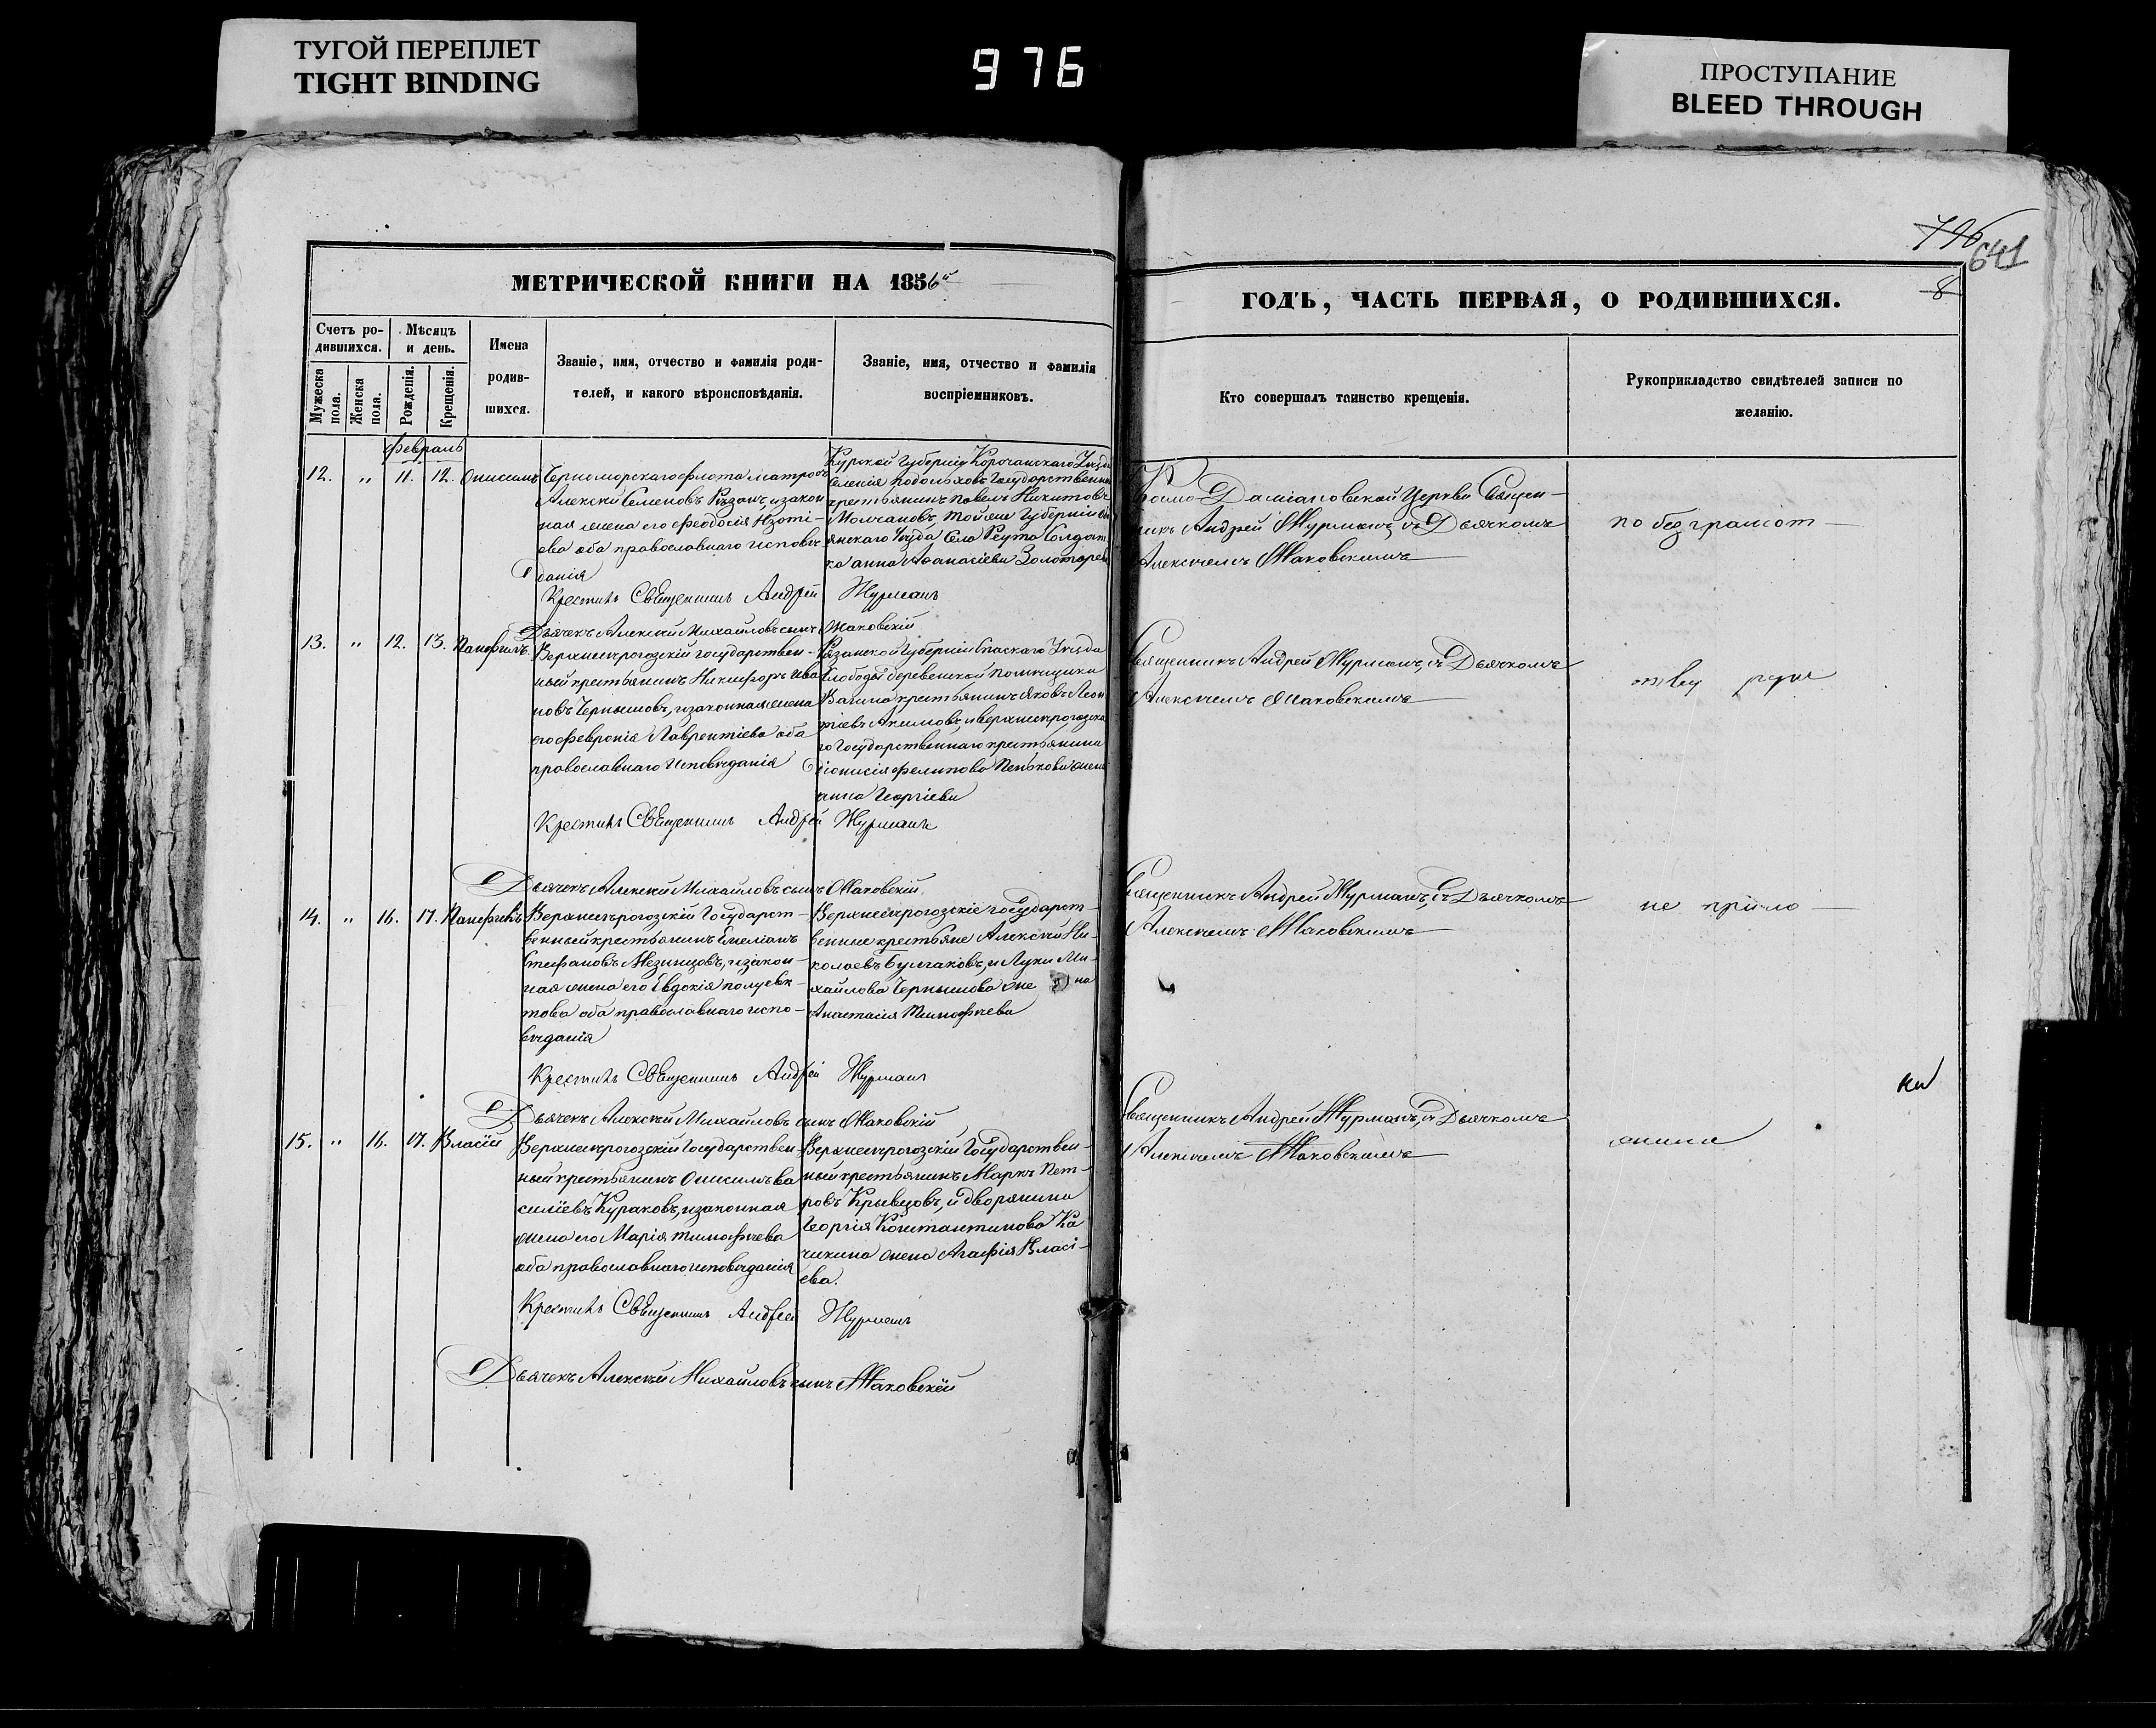 ТУГОЙ ПЕРЕПЛЕТ
TIGHT BINDING
976
ПРОСТУПАНИЕ
BLEED THROUGH
796
641
8
МЕТРИЧЕСКОЙ КНИГИ НА 1856й
ГОДЪ, ЧАСТЬ ПЕРВАЯ, О РОДИВШИХСЯ.
Счетъ ро-
дившихся.
Мужеска пола.
Женска пола.
Мѣсяцъ
и день.
Рожденія.
Крещенія.
Имена
родив-
шихся.
Званіе, имя, отчество и фамилія роди-
телей, и какого вѣроисповѣданія.
Званіе, имя, отчество и фамилія
воспріемниковъ.
Кто совершалъ таинство крещенія.
Рукоприкладство свидѣтелей записи по
желанію.
Февраль
12. " 11. 12. Онисимъ
Черноморскаго флота матрозъ
Алексѣй Семеновъ изакон
ная жена его Феодосія Изоті-
ева оба православнаго исповѣ-
данія
Курской Губерніи Корочанскаго Уѣзда
Селенія Подольховъ Государственный
крестьянинъ Павелъ Никитовъ
Молчановъ, той же Губерніи
Уѣзда Села Реута Солдат
ка Анна Аѳанасіева Золотарева
Космо Даміановской Церкви Священ-
никъ Андрей Журманъ, съ Дьячкомъ
Алексѣемъ Маковскимъ
по безграмот-
Крестилъ Священникъ Андрей Журманъ
Дьячекъ Алексѣй Михайловъ сынъ Маковскій
13. " 12. 13. Памфилъ
Верхнерогозскій государствен-
ный крестьянинъ Никифоръ Ива
новъ Чернышовъ, изаконная жена
его Февронія Лаврентіева оба
православнаго исповѣданія
Рязанской Губерніи Спаскаго Уѣзда
Слободы деревенской помѣщика
крестьянинъ Яковъ Леон
тіевъ Акимовъ, и верхнерогозска
го Государственнаго крестьянина
Діонисія Филипова Пенькова жена
Анна Георгіева
Священникъ Андрей Журманъ, съ Дьячкомъ
Алексѣемъ Маковскимъ
Крестилъ Священникъ Андрей Журманъ
Дьячекъ Алексѣй Михайловъ сынъ Маковскій
14. " 16. 17. Памфилъ
Верхнерогозскій Государст-
венный крестьянинъ Емеліанъ
Стефановъ Мезинцовъ, изакон-
ная жена его Евдокія Полуевк-
това оба православнаго испо-
вѣданія
Верхнерогозскіе государст-
венные крестьяне Алексѣй Ни-
колаевъ Булгаковъ, и Луки Ми-
хайлова Чернышова же на
Анастасія Тимофѣева
Священникъ Андрей Журманъ, съ Дьячкомъ
Алексѣемъ Маковскимъ
не прило-
Крестилъ Священникъ Андрей Журманъ
Дьячекъ Алексѣй Михайловъ сынъ Маковскій
15. " 16. 17. Власій
Верхнерогозскій Государствен-
ный крестьянинъ Онисимъ Ва
силіевъ Кураковъ, изаконная
жена его Марія Тимофѣева
оба православнаго исповѣданія
Верхнерогозскій Государствен-
ный крестьянинъ Маркъ Пет-
ровъ Крывцовъ, и дворянина
Георгія Константинова Ка
чихина жена Агафія Власі-
ева.
Священникъ Андрей Журманъ, съ Дьячкомъ
Алексѣемъ Маковскимъ
жили
Крестилъ Священникъ Андрей Журманъ
Дьячекъ Алексѣй Михайловъ сынъ Маковскій